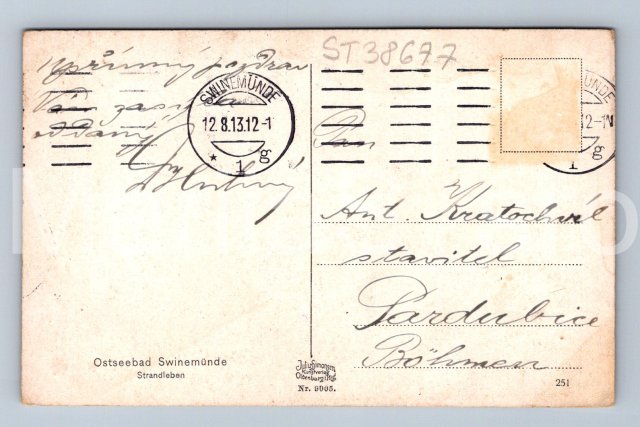 upřímný pozdrav
Vám zasílá
oddaný
ST38677
SWINEMÜNDE
12.8.13.12-1
* 1 g
MÜNDE
12-1N
1 g
Pan
Ant. Kratochvíl
stavitel
Pardubice
Böhmen
Ostseebad Swinemünde
Strandleben
Nr. 9005.
251